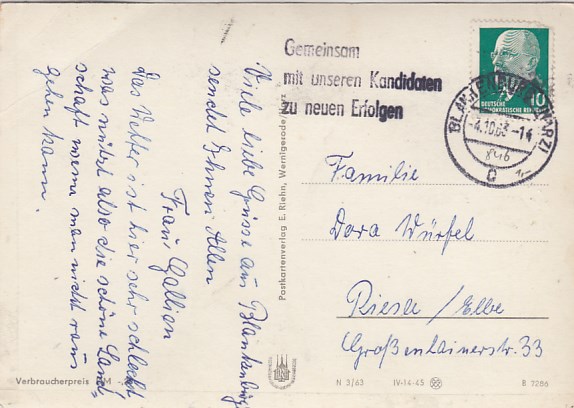 Gemeinsam
mit unseren Kandidaten
zu neuen Erfolgen
10
DEUTSCHE
DEMOKRATISCHE REPUBLIK
BLANKENBURG (HARZ)
-4.10.63.-14
a
Viele liebe Grüsse aus Blankenburg
sendet Ihnen Allen
Frau Gallien
Das Wetter ist hier sehr schlecht
was nützt also die schöne Land-
schaft wenn man nicht raus
gehen kann.
Postkartenverlag E. Riehn, Wernigerode/Harz
Familie
Dora Würfel
Riesa / Elbe
Großenhainerstr. 33
Verbraucherpreis
N 3/63 IV-14-45 B 1286